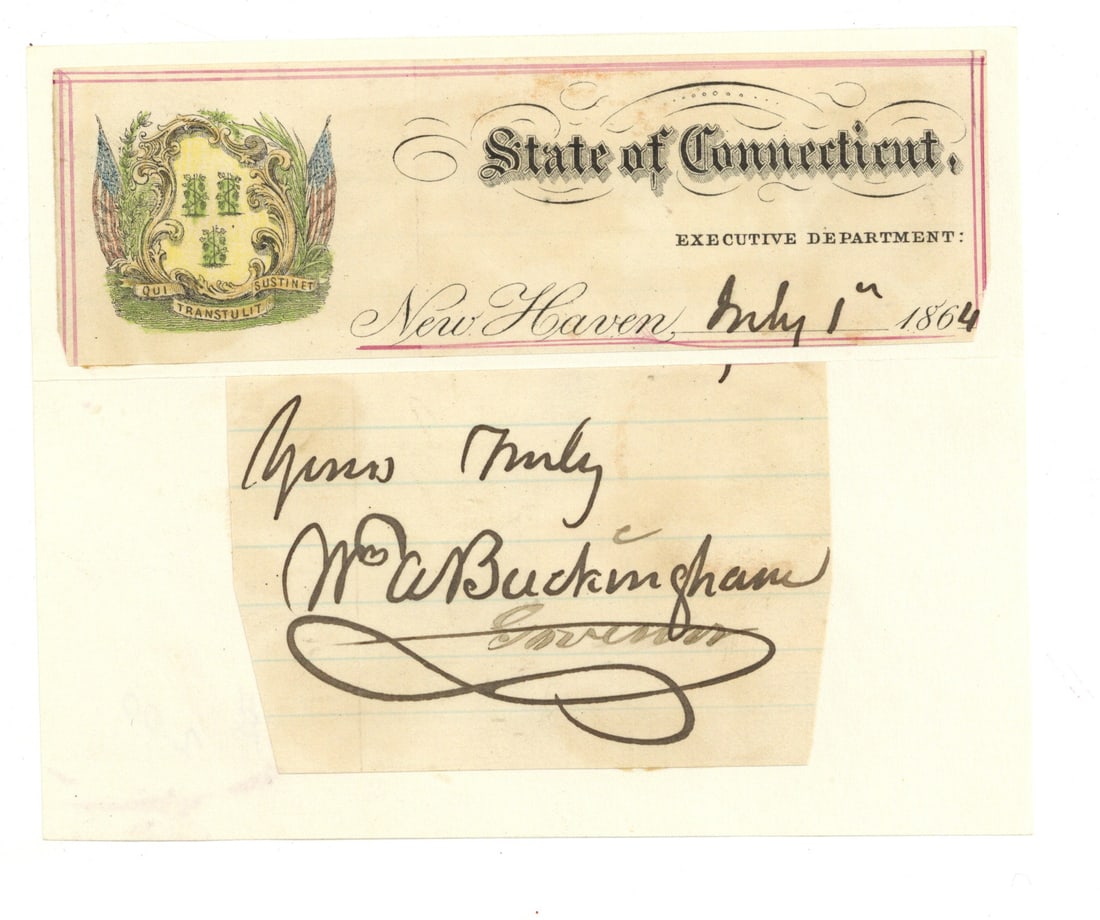 State of Connecticut.
EXECUTIVE DEPARTMENT:
QUI TRANSTULIT SUSTINET
New Haven, July 1st 1864
Yours Truly
Wm A Buckingham
Governor